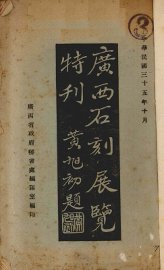 中華民國三十五年十月
廣西石刻展覽
特刊
黃旭初題
廣西省政府秘書處編譯室編印